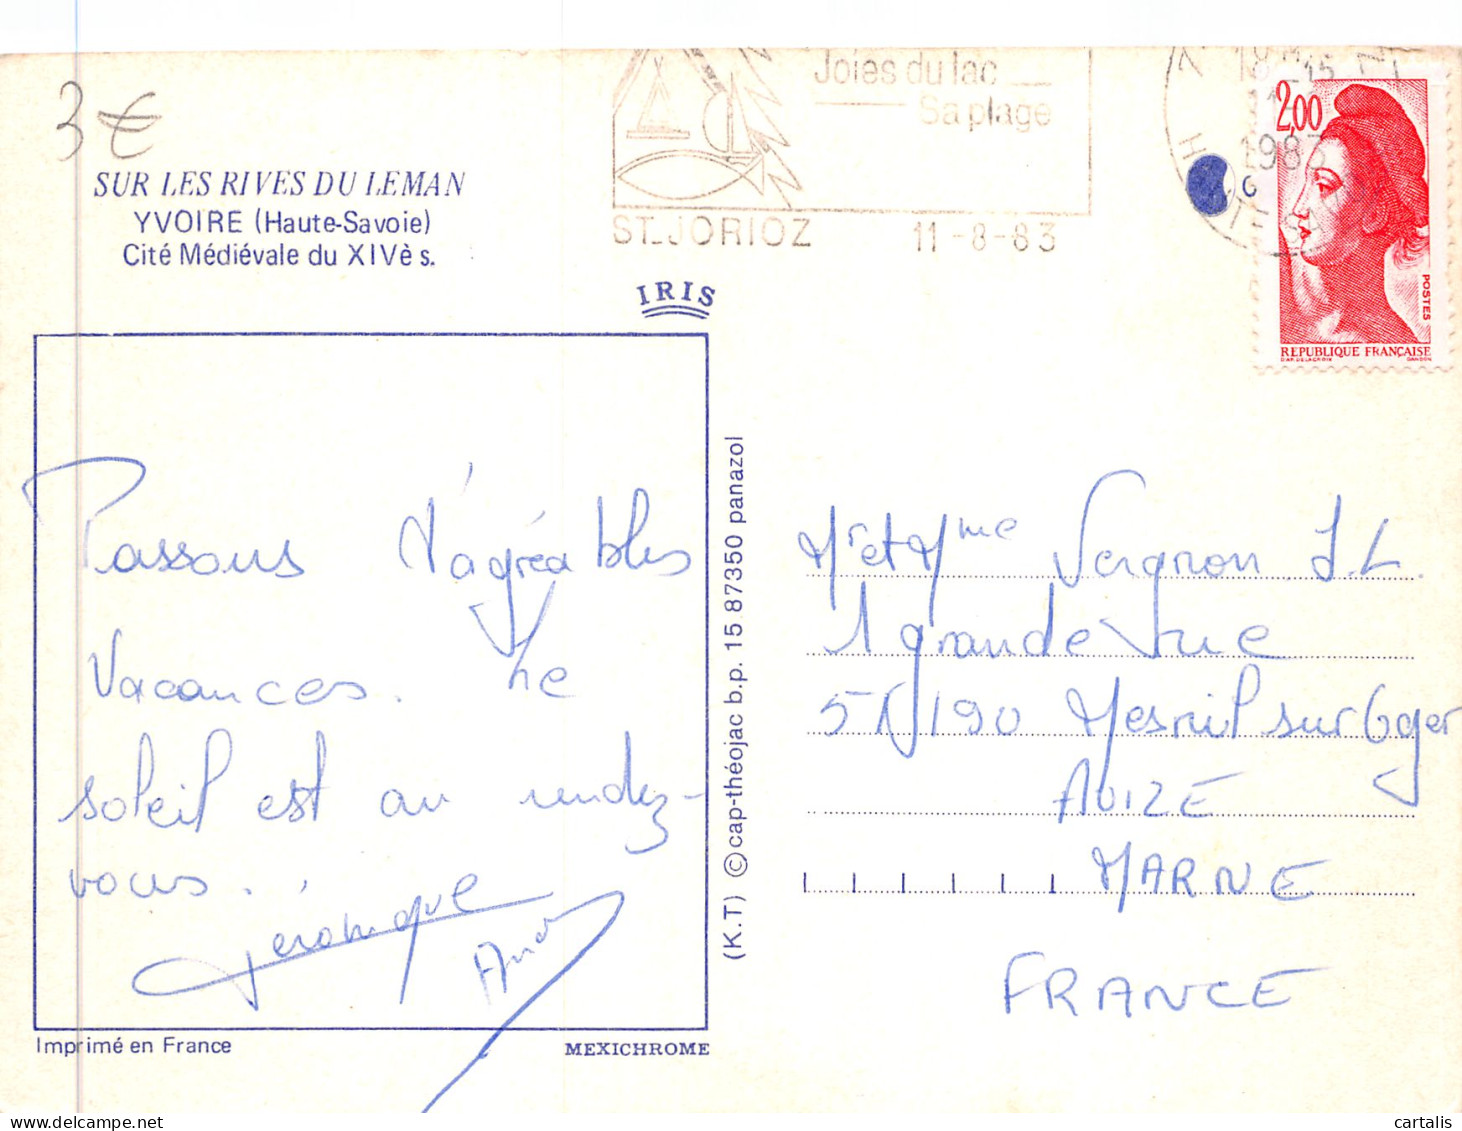 3€
SUR LES RIVES DU LEMAN
YVOIRE (Haute-Savoie)
Cité Médiévale du XIVè s.
Joies du lac
Sa plage
ST-JORIOZ 11-8-83
18 15
1983
2,00
POSTES
REPUBLIQUE FRANÇAISE
D'AP. DELACROIX GANDON
IRIS
Passons d'agréables
Vacances. Le
soleil est au rendez-
vous.
Véronique
(K.T) © cap-théojac b.p. 15 87350 panazol
Mr et Mme Vergnon J.L.
1 grande rue
51190 Mesnil sur Oger
AVIZE
MARNE
FRANCE
Imprimé en France
MEXICHROME
cartalis